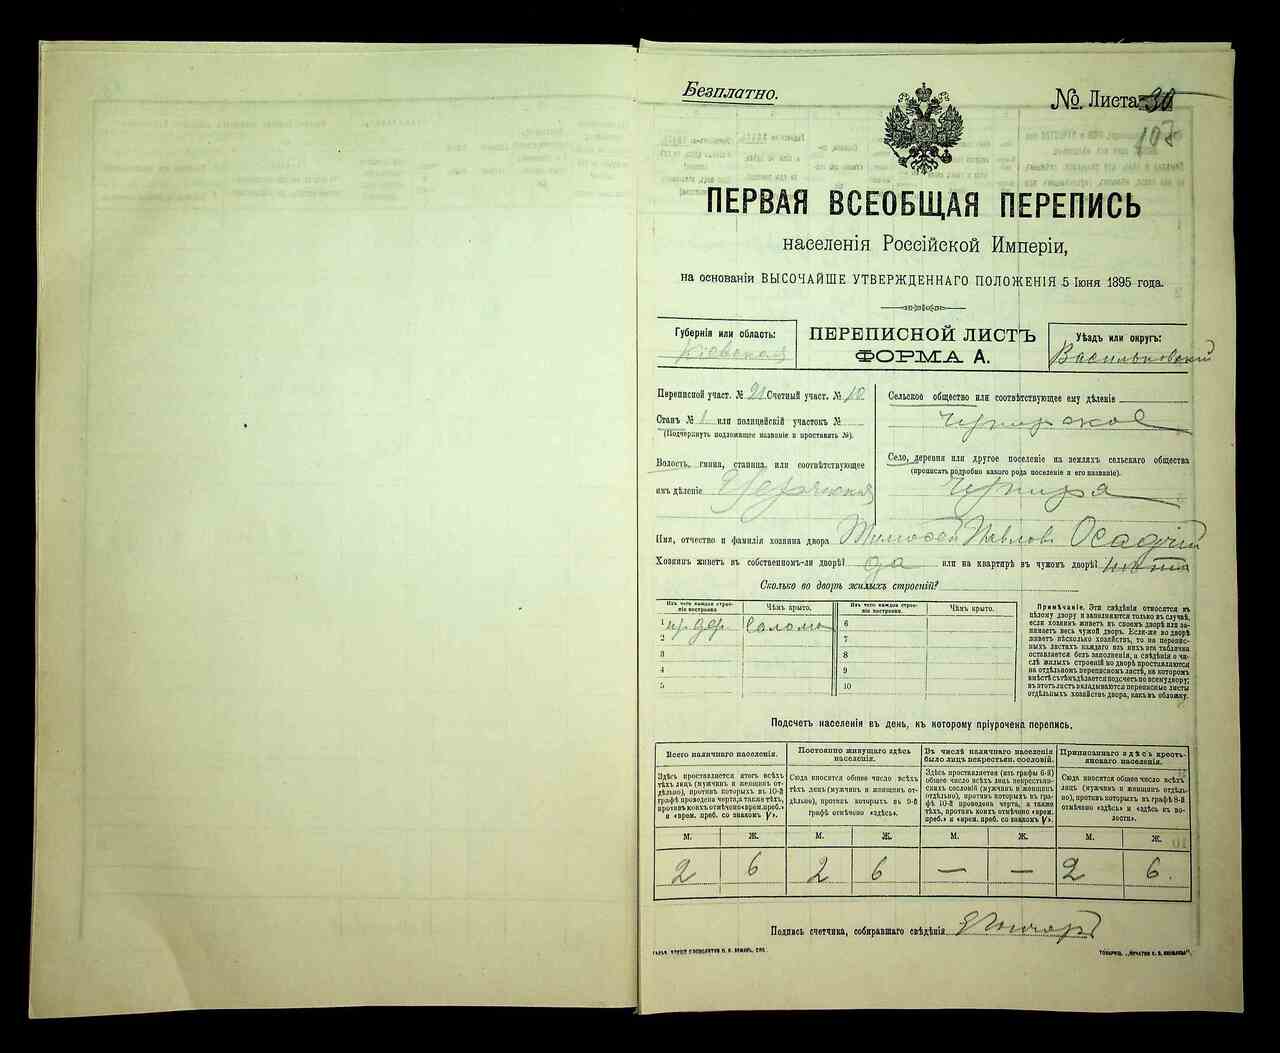 Безплатно.
№ Листа 30
103
ПЕРВАЯ ВСЕОБЩАЯ ПЕРЕПИСЬ
населенія Россійской Имперіи,
на основаніи ВЫСОЧАЙШЕ УТВЕРЖДЕННАГО ПОЛОЖЕНІЯ 5 Іюня 1895 года.
Губернія или область:
Кіевская
ПЕРЕПИСНОЙ ЛИСТЪ
ФОРМА А.
Уѣздъ или округъ:
Васильковскій
Переписной участ. № 21 Счетный участ. № 10
Станъ № 1 или полицейскій участокъ №
(Подчеркнуть подлежащее названіе и проставить №).
Волость, гмина, станица или соотвѣтствующее
имъ дѣленіе
Сельское общество или соотвѣтствующее ему дѣленіе
Село, деревня или другое поселеніе на земляхъ сельскаго общества
(прописать подробно какого рода поселеніе и его названіе).
Имя, отчество и фамилія хозяина двора Тимофей Павловъ Осадчій
Хозяинъ живетъ въ собственномъ-ли дворѣ? да или на квартирѣ въ чужомъ дворѣ?
Сколько во дворѣ жилыхъ строеній?
Изъ чего каждое строеніе построено.
Чѣмъ крыто.
Изъ чего каждое строеніе построено.
Чѣмъ крыто.
1 дер. солома 6
2 7
3 8
4 9
5 10
Примѣчаніе. Эти свѣдѣнія относятся къ
цѣлому двору и заполняются только въ случаѣ,
если хозяинъ живетъ въ своемъ дворѣ или занимаетъ
весь чужой дворъ. Если-же во дворѣ
живетъ нѣсколько хозяйствъ, то на переписныхъ
листахъ каждаго изъ нихъ эта табличка
оставляется безъ заполненія, а свѣдѣнія о числѣ
жилыхъ строеній во дворѣ проставляются
на отдѣльномъ переписномъ листѣ, на которомъ
вмѣстѣ съ тѣмъ дѣлается подсчетъ по всему двору;
въ этотъ листъ вкладываются переписные листы
отдѣльныхъ хозяйствъ двора, какъ въ обложку.
Подсчетъ населенія въ день, къ которому пріурочена перепись.
Всего наличнаго населенія.
Постоянно живущаго здѣсь населенія.
Въ числѣ наличнаго населенія было лицъ некрестьян. сословій.
Приписаннаго здѣсь крестьянскаго населенія.
Здѣсь проставляется итогъ всѣхъ
тѣхъ лицъ (мужчинъ и женщинъ отдѣльно),
противъ которыхъ въ 10-й
графѣ проведена черта, а также тѣхъ,
противъ коихъ отмѣчено «врем. преб.»
и «врем. преб. со знакомъ V».
Сюда вносится общее число всѣхъ
тѣхъ лицъ (мужчинъ и женщинъ отдѣльно),
противъ которыхъ въ 9-й
графѣ отмѣчено «здѣсь».
Здѣсь проставляется (изъ графы 6-й)
общее число всѣхъ лицъ некрестьянскихъ
сословій (мужчинъ и женщинъ
отдѣльно), противъ которыхъ въ графѣ
10-й проведена черта, а также
тѣхъ, противъ коихъ отмѣчено «врем.
преб.» и «врем. преб. со знакомъ V».
Сюда вносится общее число всѣхъ
лицъ (мужчинъ и женщинъ отдѣльно),
противъ которыхъ въ графѣ 8-й
отмѣчено «здѣсь» и «здѣсь въ волости».
М. Ж. М. Ж. М. Ж. М. Ж.
2 6 2 6 — — 2 6.
Подпись счетчика, собиравшаго свѣдѣнія